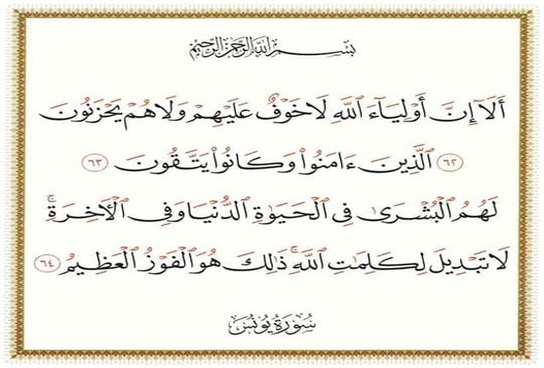 بِسْمِ ٱللَّهِ ٱلرَّحْمَٰنِ ٱلرَّحِيمِ
أَلَآ إِنَّ أَوْلِيَآءَ ٱللَّهِ لَا خَوْفٌ عَلَيْهِمْ وَلَا هُمْ يَحْزَنُونَ
٦٢ ٱلَّذِينَ ءَامَنُوا۟ وَكَانُوا۟ يَتَّقُونَ ٦٣
لَهُمُ ٱلْبُشْرَىٰ فِى ٱلْحَيَوٰةِ ٱلدُّنْيَا وَفِى ٱلْـَٔاخِرَةِ ۚ
لَا تَبْدِيلَ لِكَلِمَٰتِ ٱللَّهِ ۚ ذَٰلِكَ هُوَ ٱلْفَوْزُ ٱلْعَظِيمُ ٦٤
سُورَةُ يُونُسَ